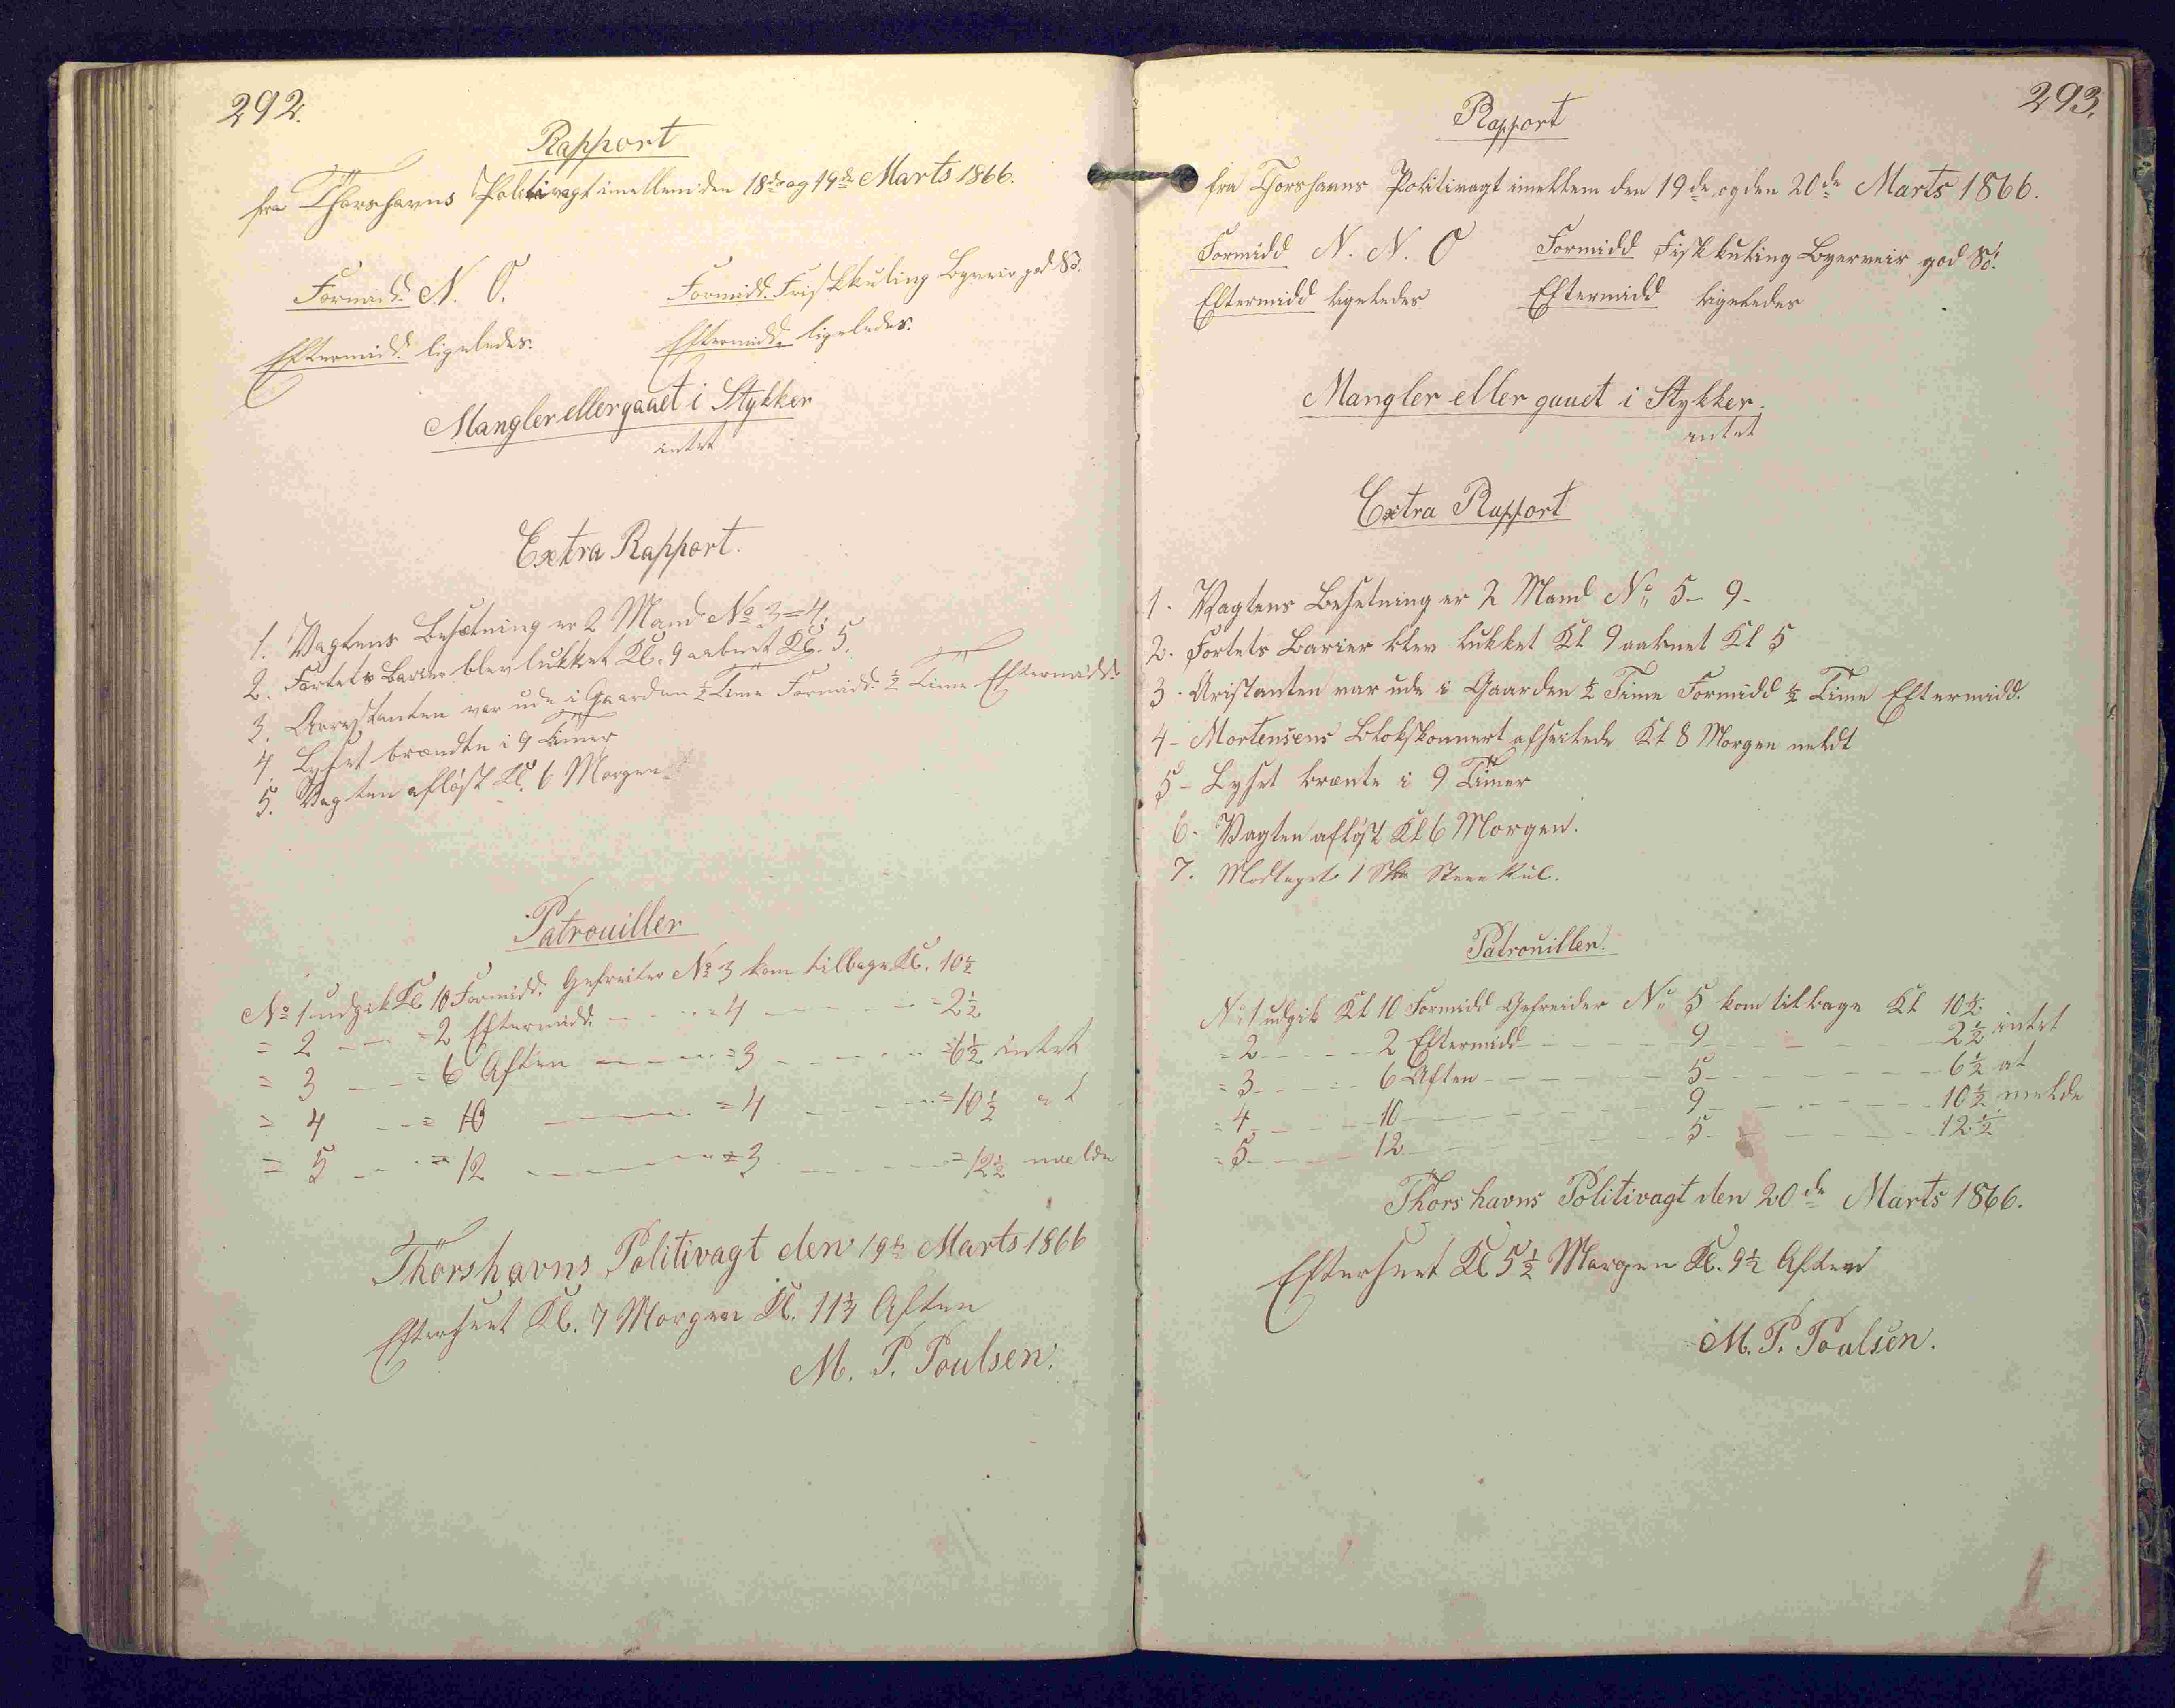 292.
Rapport
fra Thorshavns Politivagt imellem den 18de og 19de Marts 1866.
Formidd. N. O. Formidd. Friskkuling Byeveir god Sö.
Eftermidd. ligeledes. Eftermidd. ligeledes.
Mangler eller gaaet i Stykker
intet
Extra Rapport.
1. Vagtens Besætning er 2 Mand No 3 = 4.
2. Fortets Barier blev lukket Kl. 9 aabnet Kl. 5.
3. Arrestanten var ude i Gaarden ½ Time Formidd. ½ Time Eftermidd.
4. Lyset brændte i 9 Timer
5. Vagten afløst Kl. 6 Morgen
Patrouiller
No 1 udgik Kl 10 Formidd. Gefreiter No 3 kom tilbage Kl. 10½
= 2 - - = 2 Eftermidd. - - = 4 - - = 2½
= 3 - - = 6 Aften - - = 3 - - = 6½ intet
= 4 - - = 10 - - = 4 - - = 10½ at
= 5 - - = 12 - - = 3 - - = 12½ melde
Thorshavns Politivagt den 19de Marts 1866
Efterseet Kl. 7 Morgen Kl. 11½ Aften
M. P. Poulsen.
293.
Rapport
fra Thorshavns Politivagt imellem den 19de og den 20de Marts 1866.
Formidd N. N. O Formidd Fiskkuling Byerveir god Sö.
Eftermidd ligeledes Eftermidd ligeledes
Mangler eller gauet i Stykker.
intet
Extra Rapport
1. Vagtens Besetning er 2 Mand No 5 - 9 -
2. Fortets Barier blev lukket Kl 9 aabnet Kl 5
3. Aristanten var ude i Gaarden ½ Time Formidd ½ Time Eftermidd.
4 - Mortensens Blokskonnert afseilede Kl 8 Morgen meldt
5 - Lyset brænte i 9 Timer
6. Vagten afløst Kl 6 Morgen.
7. Modtaget 1 Steen Kul.
Patrouiller.
No 1 udgik Kl 10 Formidd Gefreider No 5 kom tilbage Kl 10½
= 2 - - 2 Eftermidd - - 9 - - 2½ intet
= 3 - - 6 Aften - - 5 - - 6½ at
= 4 - - 10 - - 9 - - 10½ melde
= 5 - - 12 - - 5 - - 12½
Thorshavns Politivagt den 20de Marts 1866.
Efterseet Kl 5½ Morgen Kl. 9½ Aften
M. P. Poulsen.